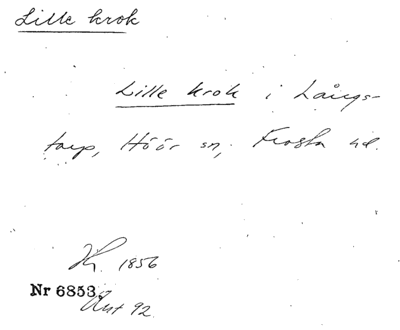 Lille krok
Lille krok i Långs-
torp, Höör sn, Frosta hd.
1856
Nr 6853
92.